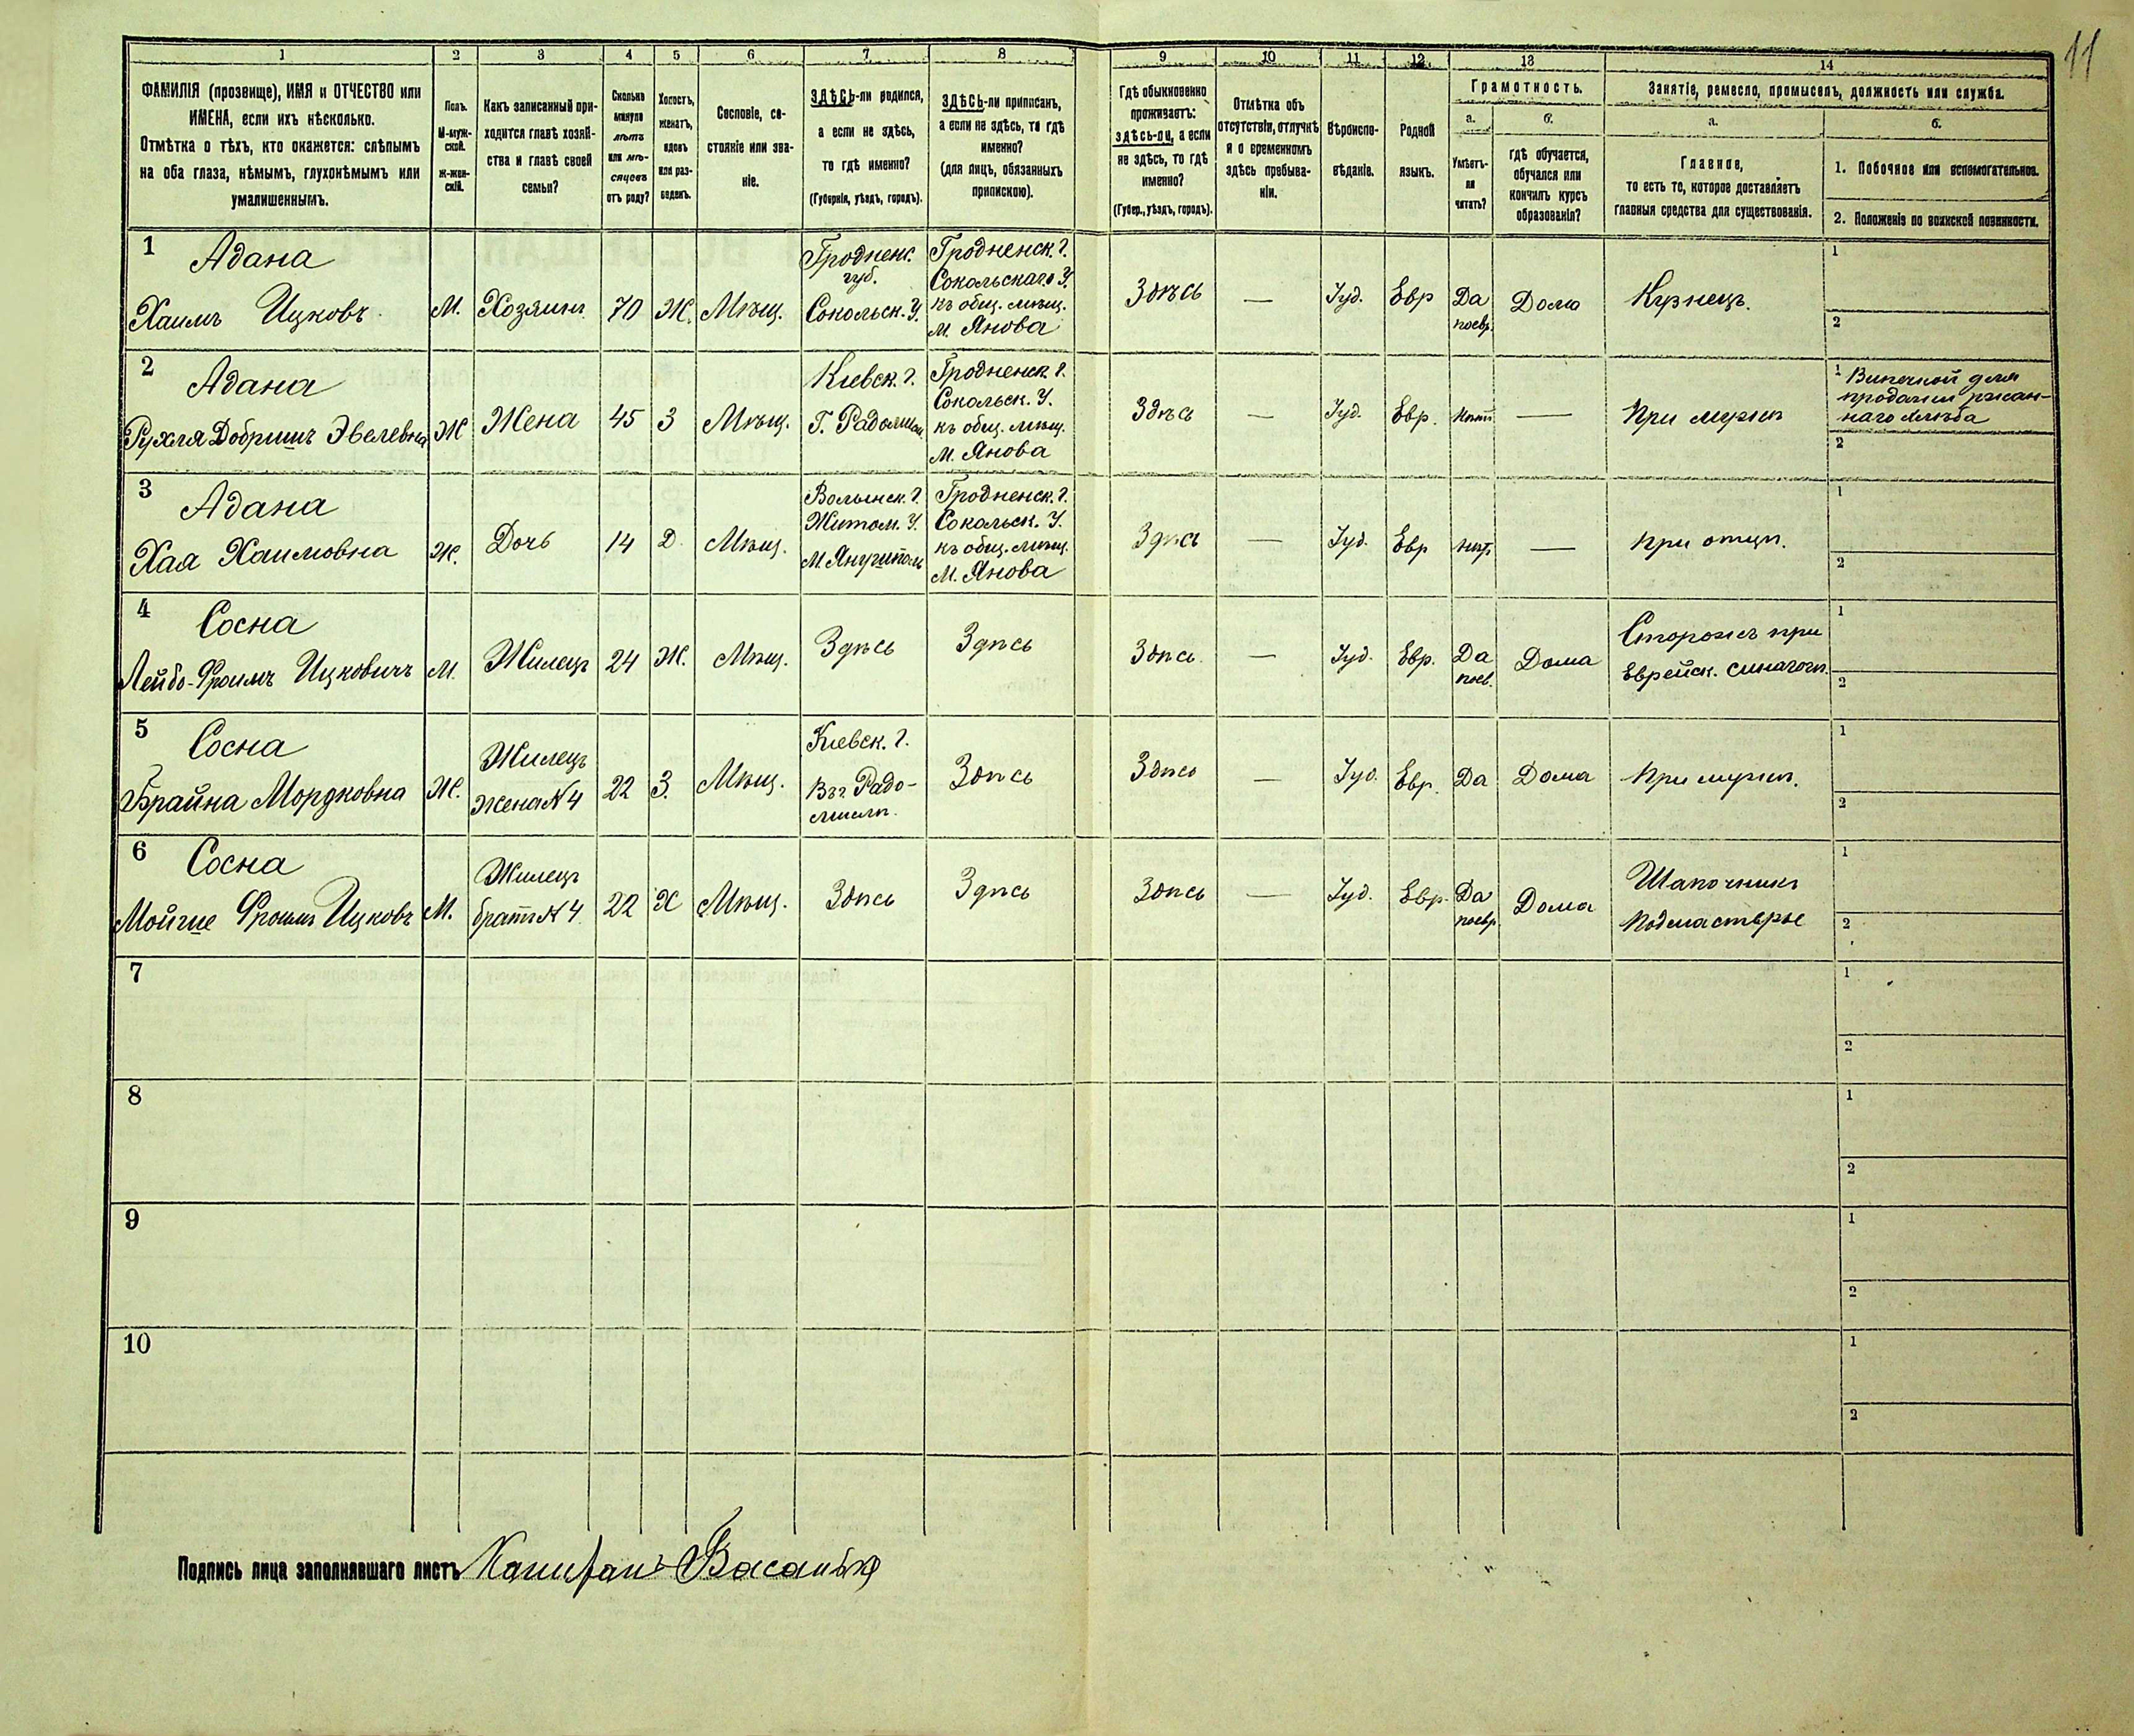 11
1 2 3 4 5 6 7 8 9 10 11 12 13 14
ФАМИЛІЯ (прозвище), ИМЯ и ОТЧЕСТВО или
ИМЕНА, если ихъ нѣсколько.
Отмѣтка о тѣхъ, кто окажется: слѣпымъ
на оба глаза, нѣмымъ, глухонѣмымъ или
умалишеннымъ.
Полъ.
М-муж-
ской.
Ж-жен-
скій.
Какъ записанный при-
ходится главѣ хозяй-
ства и главѣ своей
семьи?
Сколько
минуло
лѣтъ
или мѣ-
сяцевъ
отъ роду?
Холостъ,
женатъ,
вдовъ
или раз-
веденъ.
Сословіе, со-
стояніе или зва-
ніе.
ЗДѢСЬ-ли родился,
а если не здѣсь,
то гдѣ именно?
(Губернія, уѣздъ, городъ).
ЗДѢСЬ-ли приписанъ,
а если не здѣсь, то гдѣ
именно?
(для лицъ, обязанныхъ
припискою).
Гдѣ обыкновенно
проживаетъ:
здѣсь-ли, а если
не здѣсь, то гдѣ
именно?
(Губер., уѣздъ, городъ).
Отмѣтка объ
отсутствіи, отлучкѣ
и о временномъ
здѣсь пребыва-
ніи.
Вѣроиспо-
вѣданіе.
Родной
языкъ.
Грамотность.
а.
Умѣетъ-
ли
читать?
б.
гдѣ обучается,
обучался или
кончилъ курсъ
образованія?
Занятіе, ремесло, промыселъ, должность или служба.
а.
Главное,
то есть то, которое доставляетъ
главныя средства для существованія.
б.
1. Побочное или вспомогательное.
2. Положеніе по воинской повинности.
1
Адана
Хаимъ Ицковъ
М.
Хозяинъ
70
Ж.
Мѣщ.
Гродненс.
губ.
Сокольск. У.
Гродненск. г.
Сокольскаго У.
къ общ. мѣщ.
м. Янова
Здѣсь
—
Іуд.
Евр
Да
поевр.
Дома
Кузнецъ.
1
2
2
Адана
Рухля Добришъ Эвелевна
Ж
Жена
45
З
Мѣщ.
Кіевск. г.
Г. Радомысл
Гродненск. г.
Сокольск. У.
къ общ. мѣщ.
М. Янова
Здѣсь
—
Іуд.
Евр.
Нѣтъ
—
При мужѣ
1
продажи ржан-
наго хлѣба
2
3
Адана
Хая Хаимовна
Ж.
Дочь
14
Д
Мѣщ.
Волынск. г.
Житом. У.
Гродненск. г.
Сокольск. У.
къ общ. мѣщ.
М. Янова
Здѣсь
—
Іуд.
Евр
Нѣтъ
—
При отцѣ.
1
2
4
Сосна
Лейбо-Фроимъ Ицковичъ
М.
Жилецъ
24
Ж.
Мѣщ.
Здѣсь
Здѣсь
Здѣсь
—
Іуд.
Евр.
Да
поев.
Дома
Сторожъ при
Еврейск. синагогѣ.
1
2
5
Сосна
Брайна Мордковна
Ж.
Жилецъ
Жена N 4
22
З.
Мѣщ.
Кіевск. г.
Въ г. Радо-
мыслѣ.
Здѣсь
Здѣсь
—
Іуд.
Евр.
Да
Дома
При мужѣ.
1
2
6
Сосна
Фроимъ Ицковъ
М.
Жилецъ
братъ N 4
22
Х
Мѣщ.
Здѣсь
Здѣсь
Здѣсь
—
Іуд.
Евр.
Да
поевр
Дома
Шапочникъ
Подмастерье
1
2
7
1
2
8
1
2
9
1
2
10
1
2
Подпись лица заполнявшаго листъ